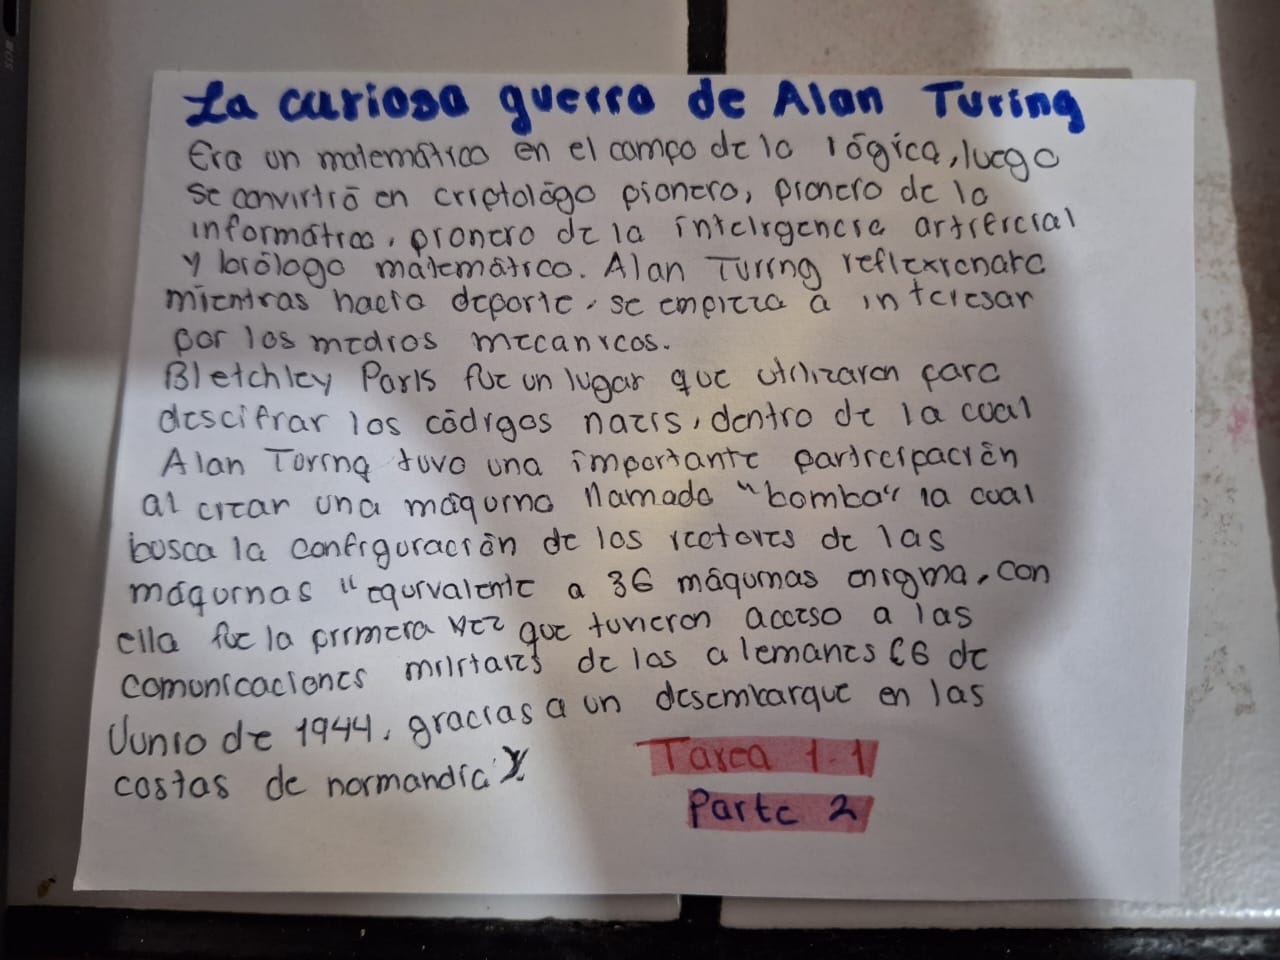 La curiosa guerra de Alan Turing
Era un matemático en el campo de la lógica, luego
se convirtió en criptológo pionero, pionero de la
informática, pionero de la inteligencia artificial
y biólogo matemático. Alan Turing reflexionara
mientras hacia deporte, se empieza a interesar
por los medios mecanicos.
Bletchley Paris fue un lugar que utilizaron para
descifrar los códigos nazis, dentro de la cual
Alan Turing tuvo una importante participación
al crear una máquina llamada "bomba" la cual
busca la configuración de los rectores de las
máquinas "equivalente a 36 máquinas enigma, con
ella fue la primera vez que tuvieron acceso a las
comunicaciones militares de los alemanes (6 de
Junio de 1944, gracias a un desembarque en las
costas de normandía
Tarea 1.1
Parte 2